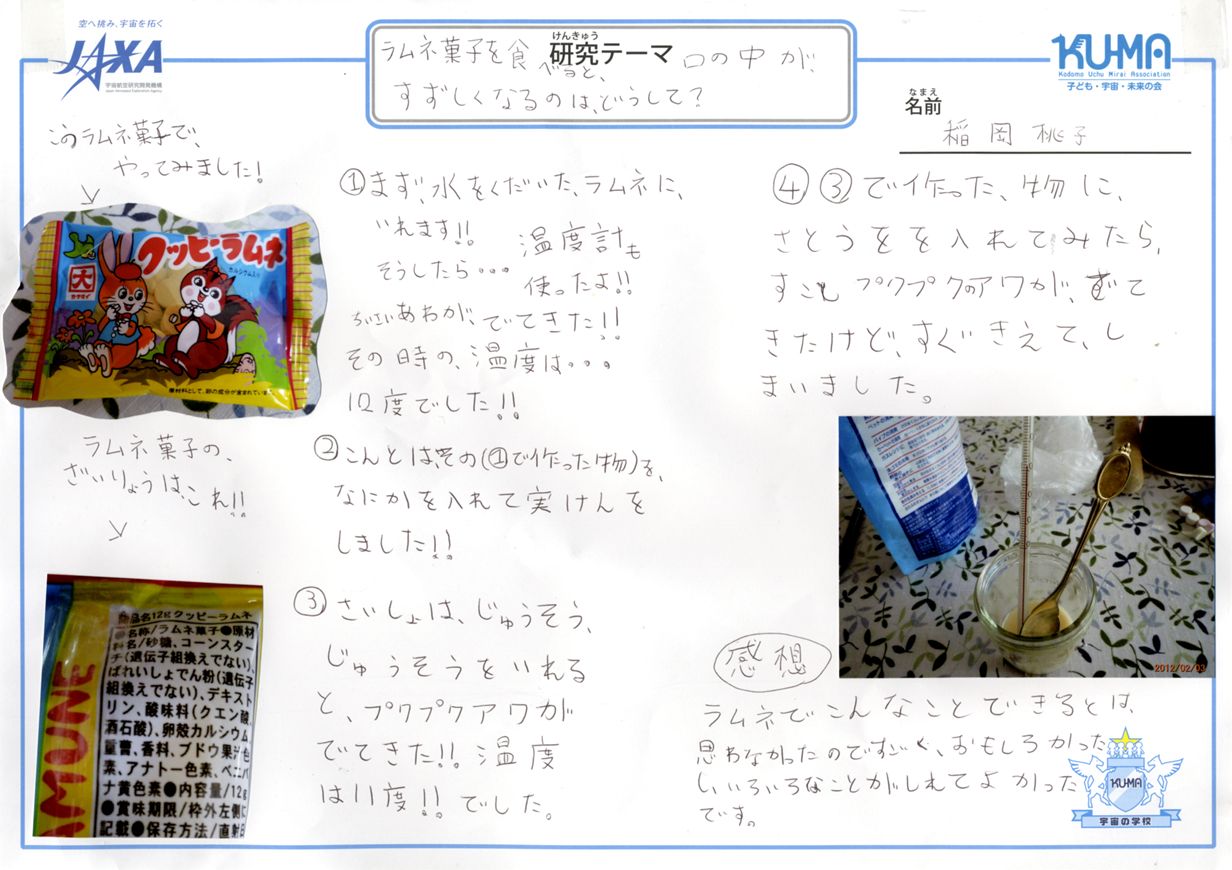 空へ挑み、宇宙を拓く
JAXA
宇宙航空研究開発機構
Japan Aerospace Exploration Agency
けんきゅう
研究テーマ
ラムネ菓子を食べると、口の中が、
すずしくなるのは、どうして?
KU-MA
Kodomo Uchu Mirai Association
子ども・宇宙・未来の会
なまえ
名前
稲岡桃子
このラムネ菓子で、
やってみました!
クッピーラムネ
カルシウム入り
大
カクダイ
原材料として、卵の成分が含まれています
ラムネ菓子の、
ざいりょうは、これ!!
品名12gクッピーラムネ
●名称/ラムネ菓子●原材
料名/砂糖、コーンスター
チ(遺伝子組換えでない)、
ばれいしょでん粉(遺伝子
組換えでない)、デキスト
リン、酸味料(クエン酸、
酒石酸)、卵殻カルシウム
重曹、香料、ブドウ果汁色
素、アナトー色素、ベニバ
ナ黄色素●内容量/12g
●賞味期限/枠外左側に
記載●保存方法/直射日
AMUNE
①まず、水をくだいた、ラムネに、
いれます!!
温度計も
そうしたら・・・
使ったよ!!
ちいさいあわが、でてきた!!
その時の、温度は・・・
12度でした!!
②こんとは、その(①で作った物)を、
なにかを入れて実けんを
しました!!
③さいしょは、じゅうそう、
じゅうそうをいれる
と、プクプクアワが
でてきた!!温度
は11度!!でした。
④③で作った、物に、
さとうをを入れてみたら、
すこしプクプクのアワが、でて
きたけど、すぐきえて、し
まいました。
2012/02/03
感想
ラムネでこんなことできるとは、
思わなかったのですごく、おもしろかった
し、いろいろなことがしれてよかった
です。
KUMA
宇宙の学校